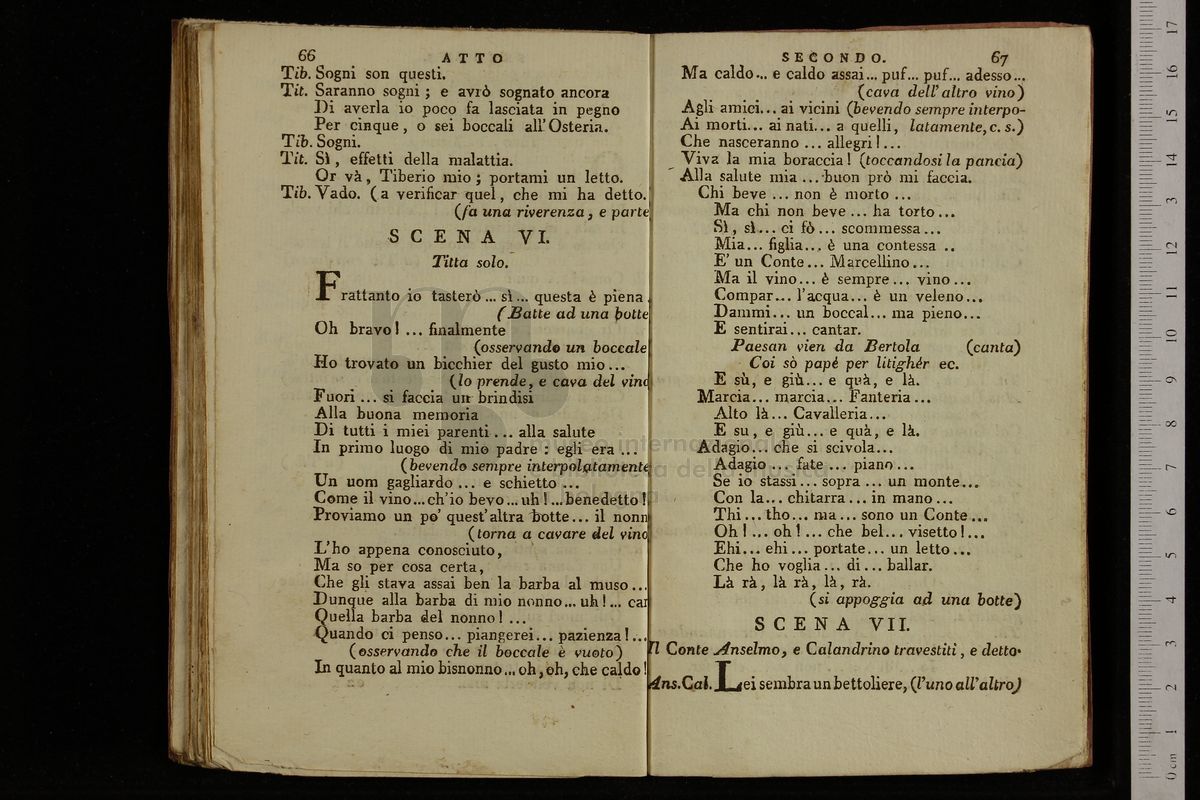 66 ATTO
Tib. Sogni son questi.
Tit. Saranno sogni ; e avrò sognato ancora
Di averla io poco fa lasciata in pegno
Per cinque, o sei boccali all'Osteria.
Tib. Sogni.
Tit. Sì, effetti della malattia.
Or và, Tiberio mio ; portami un letto.
Tib. Vado. (a verificar quel, che mi ha detto.
(fa una riverenza, e parte
SCENA VI.
Titta solo.
Frattanto io tasterò ... sì ... questa è piena
(Batte ad una botte
Oh bravo! ... finalmente
(osservando un boccale
Ho trovato un bicchier del gusto mio ...
(lo prende, e cava del vino
Fuori ... si faccia un brindisi
Alla buona memoria
Di tutti i miei parenti ... alla salute
In primo luogo di mio padre : egli era ...
(bevendo sempre interpolatamente
Un uom gagliardo ... e schietto ...
Come il vino...ch'io bevo ... uh ! ...benedetto !
Proviamo un po' quest'altra botte... il nonn
(torna a cavare del vino
L'ho appena conosciuto,
Ma so per cosa certa,
Che gli stava assai ben la barba al muso...
Dunque alla barba di mio nonno... uh!... car
Quella barba del nonno! ...
Quando ci penso... piangerei... pazienza!...
(osservando che il boccale è vuoto)
In quanto al mio bisnonno ... oh, oh, che caldo!
SECONDO. 67
Ma caldo... e caldo assai... puf... puf... adesso...
(cava dell'altro vino)
Agli amici... ai vicini (bevendo sempre interpo-
Ai morti... ai nati... a quelli, latamente, c. s.)
Che nasceranno ... allegri!...
Viva la mia boraccia! (toccandosi la pancia)
Alla salute mia ... buon prò mi faccia.
Chi beve ... non è morto ...
Ma chi non beve ... ha torto ...
Sì, sì... ci fò ... scommessa ...
Mia... figlia... è una contessa ..
E' un Conte... Marcellino...
Ma il vino... è sempre... vino ...
Compar... l'acqua... è un veleno...
Dammi... un boccal... ma pieno...
E sentirai... cantar.
Paesan vien da Bertola (canta)
Coi sò papé per litighér ec.
E sù, e giù... e quà, e là.
Marcia... marcia... Fanteria ...
Alto là... Cavalleria...
E su, e giù... e quà, e là.
Adagio... che si scivola...
Adagio ... fate ... piano ...
Se io stassi... sopra ... un monte...
Con la... chitarra ... in mano ...
Thi ... tho... ma ... sono un Conte ...
Oh ! ... oh ! ... che bel... visetto!...
Ehi... ehi ... portate... un letto...
Che ho voglia... di... ballar.
Là rà, là rà, là, rà.
(si appoggia ad una botte)
SCENA VII.
Il Conte Anselmo, e Calandrino travestiti, e detto.
Ans.Cal. Lei sembra un bettoliere, (l'uno all'altro)